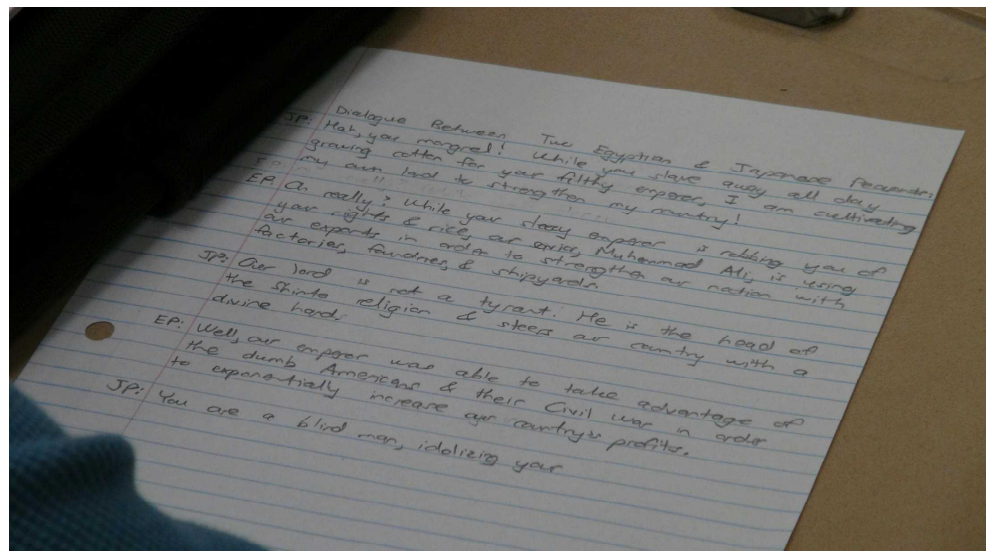 Dialogue Between Two Egyptian & Japanese Peasants:
JP: Hah, you mongrel! While you slave away all day
growing cotton for your filthy emperor, I am cultivating
my own land to strengthen my country!
EP: Oh really? While your sleazy emperor is robbing you of
your rights & rice, our Muhammad Ali is using
our exports in order to strengthen our nation with
factories, foundries, & shipyards.
JP: Our lord is not a tyrant. He is the head of
the Shinto religion & steers our country with a
divine hand.
EP: Well, our emperor was able to take advantage of
the dumb Americans & their Civil war in order
to exponentially increase our country's profits.
JP: You are a blind man, idolizing your